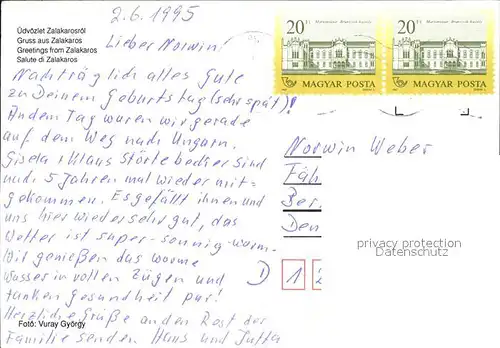 2.6.1995
Üdvözlet Zalakarosról
Gruss aus Zalakaros
Greetings from Zalakaros
Salute di Zalakaros
Lieber Norwin!
Nachträglich alles Gute
zu Deinem Geburtstag (sehr spät)!
An dem Tag waren wir gerade
auf dem Weg nach Ungarn.
Gisela + Klaus Störtebecker sind
nach 5 Jahren mal wieder mit-
gekommen. Es gefällt ihnen und
uns hier wieder sehr gut, das
Wetter ist super-sonnig-warm.
Wir genießen das warme
Wasser in vollen Zügen und
tanken Gesundheit pur!
Herzliche Grüße an den Rest der
Familie senden Hans und Jutta
Fotó: Vuray György
20 Ft
MAGYAR POSTA
20 Ft
MAGYAR POSTA
Norwin Weber
Fäh
Ber
Den
D 1 2
privacy protection
Datenschutz